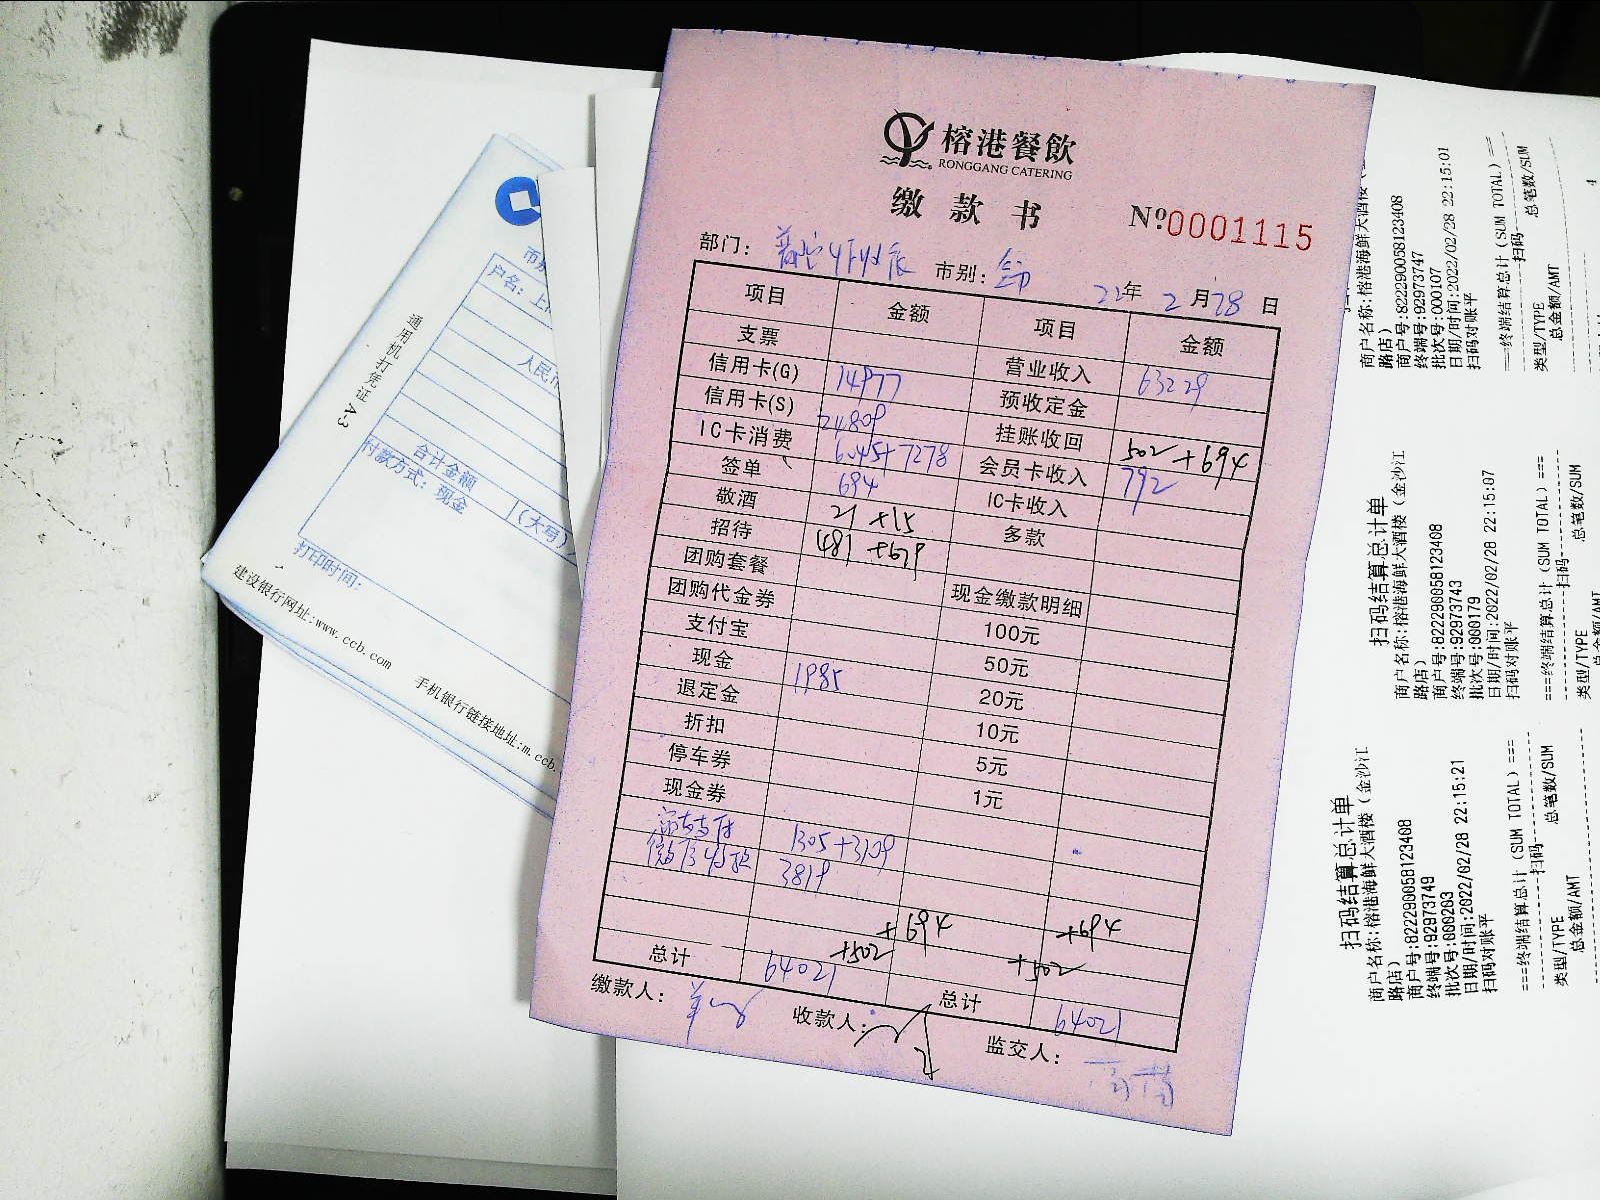 榕港餐飲
RONGGANG CATERING
缴款书 Nº:0001115
部门: 市别: 22年 2月28日
项目 金额 项目 金额
支票 营业收入 63229
信用卡(G) 14977 预收定金
信用卡(S) 24809 挂账收回 502+694
IC卡消费 6045+7278 会员卡收入 792
签单 694 IC卡收入
敬酒 21+15 多款
招待 481+679
团购套餐 现金缴款明细
团购代金券 100元
支付宝 50元
现金 1985 20元
退定金 10元
折扣 5元
停车券 1元
现金券
1305+3109
3819
+694 +694
+502 +502
总计 64021 总计 64021
缴款人: 收款人: 监交人:
户名: 上
人民
合计金额
(大写)
付款方式: 现金
打印时间:
通用机打凭证 A-3
建设银行网址:www.ccb.com
手机银行链接地址:m.ccb.
商户名称:榕港海鲜大酒楼(
路店)
商户号:822290058123408
终端号:92973747
批次号:000107
日期/时间:2022/02/28 22:15:01
扫码对账平
===终端结算总计(SUM TOTAL)===
扫码
类型/TYPE 总笔数/SUM
总金额/AMT
扫码结算总计单
商户名称:榕港海鲜大酒楼(金沙江
路店)
商户号:822290058123408
终端号:92973743
批次号:000179
日期/时间:2022/02/28 22:15:07
扫码对账平
===终端结算总计(SUM TOTAL)===
扫码
类型/TYPE 总笔数/SUM
总金额/AMT
扫码结算总计单
商户名称:榕港海鲜大酒楼(金沙江
路店)
商户号:822290058123408
终端号:92973749
批次号:000203
日期/时间:2022/02/28 22:15:21
扫码对账平
===终端结算总计(SUM TOTAL)===
扫码
类型/TYPE 总笔数/SUM
总金额/AMT